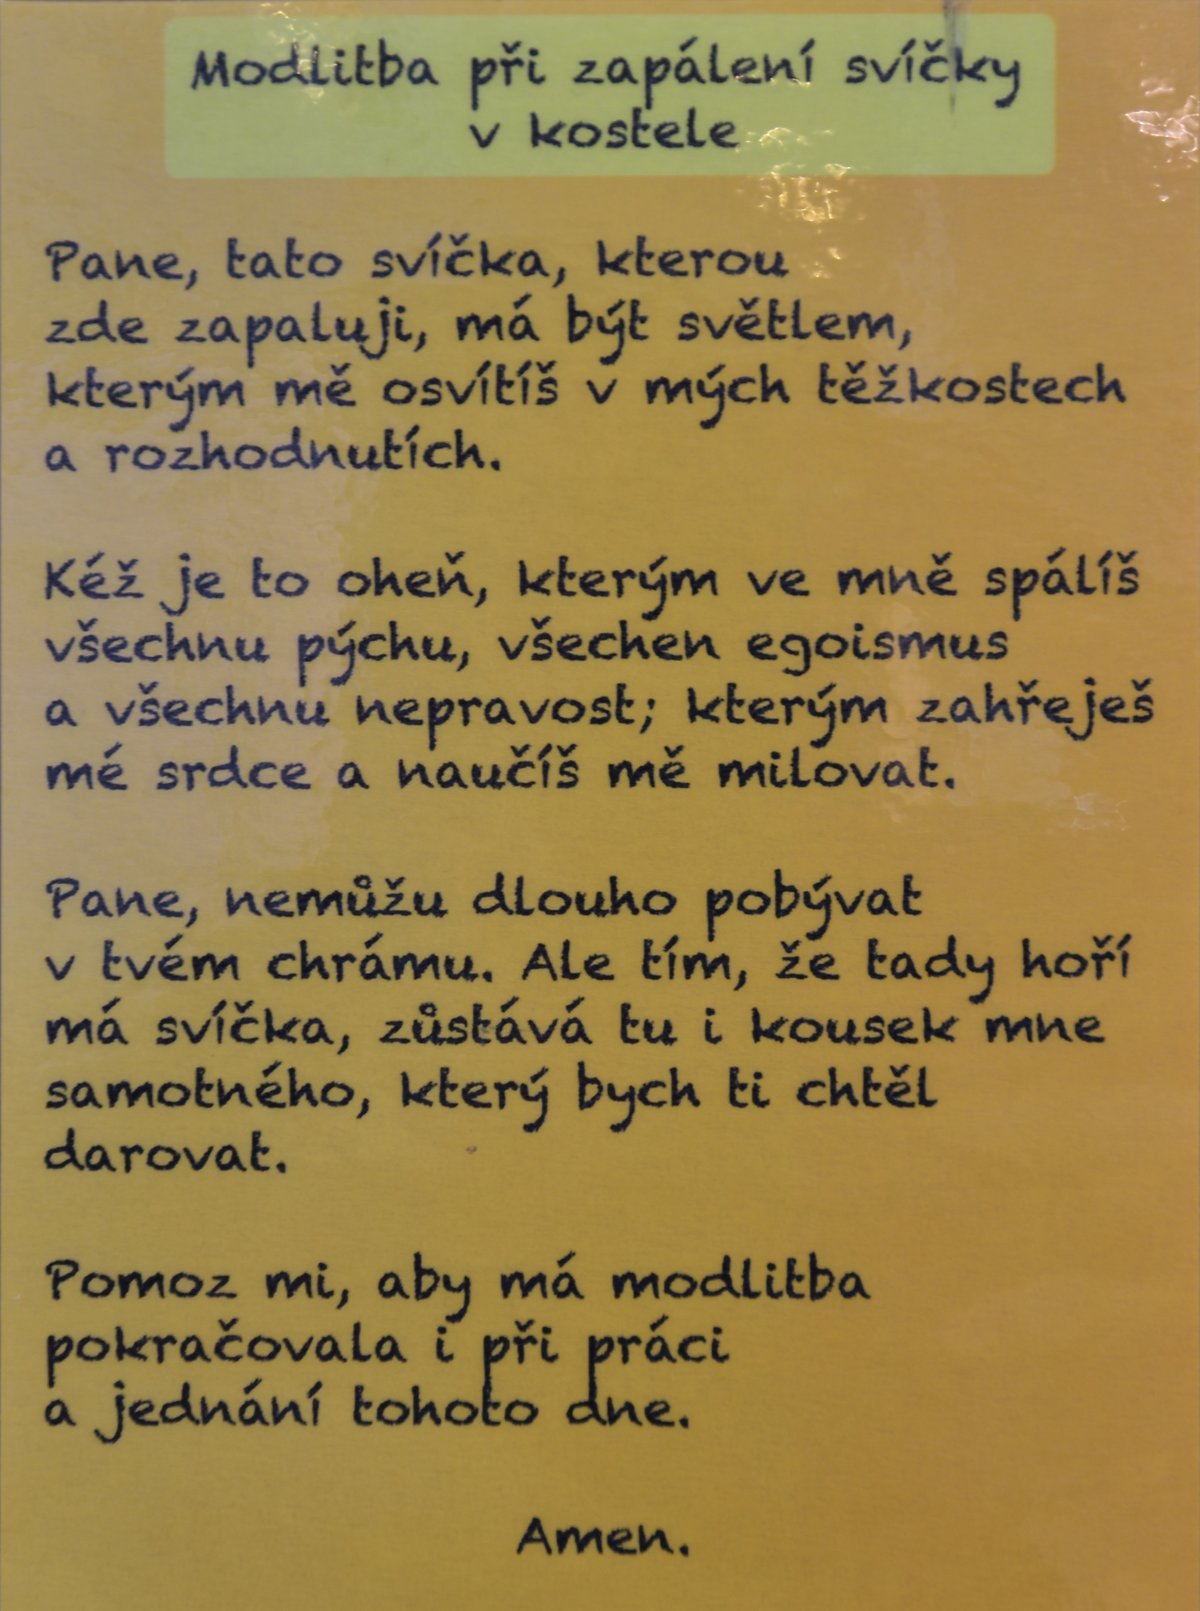 Modlitba při zapálení svíčky
v kostele
Pane, tato svíčka, kterou
zde zapaluji, má být světlem,
kterým mě osvítíš v mých těžkostech
a rozhodnutích.
Kéž je to oheň, kterým ve mně spálíš
všechnu pýchu, všechen egoismus
a všechnu nepravost; kterým zahřeješ
mé srdce a naučíš mě milovat.
Pane, nemůžu dlouho pobývat
v tvém chrámu. Ale tím, že tady hoří
má svíčka, zůstává tu i kousek mne
samotného, který bych ti chtěl
darovat.
Pomoz mi, aby má modlitba
pokračovala i při práci
a jednání tohoto dne.
Amen.